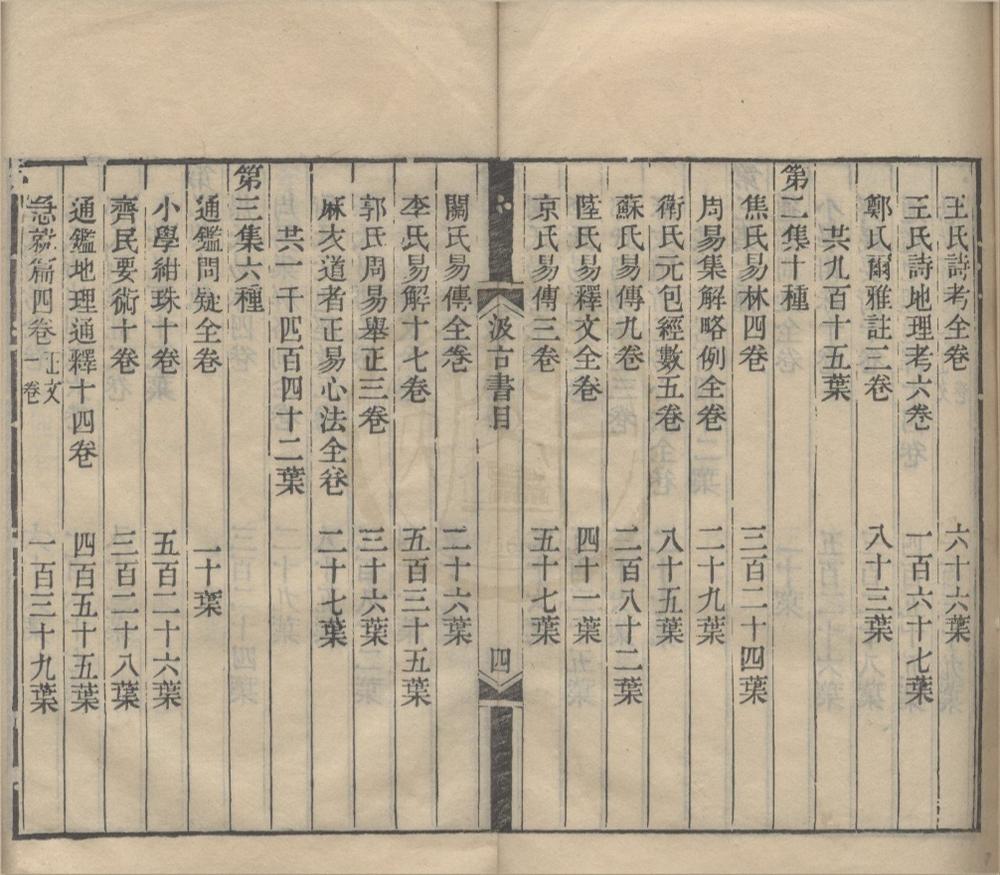 王氏詩考全卷　六十六葉
王氏詩地理考六卷　一百六十七葉
鄭氏爾雅註三卷　八十三葉
共九百十五葉
第二集十種
焦氏易林四卷　三百二十四葉
周易集解略例全卷　二十九葉
衛氏元包經數五卷　八十五葉
蘇氏易傳九卷　二百八十二葉
陸氏易釋文全卷　四十一葉
京氏易傳三卷　五十七葉
汲古書目　四
關氏易傳全卷　二十六葉
李氏易解十七卷　五百三十五葉
郭氏周易舉正三卷　三十六葉
麻衣道者正易心法全卷　二十七葉
共一千四百四十二葉
第三集六種
通鑑問疑全卷　一十葉
小學紺珠十卷　五百二十六葉
齊民要術十卷　三百二十八葉
通鑑地理通釋十四卷　四百五十五葉
急就篇四卷正文一卷　一百三十九葉